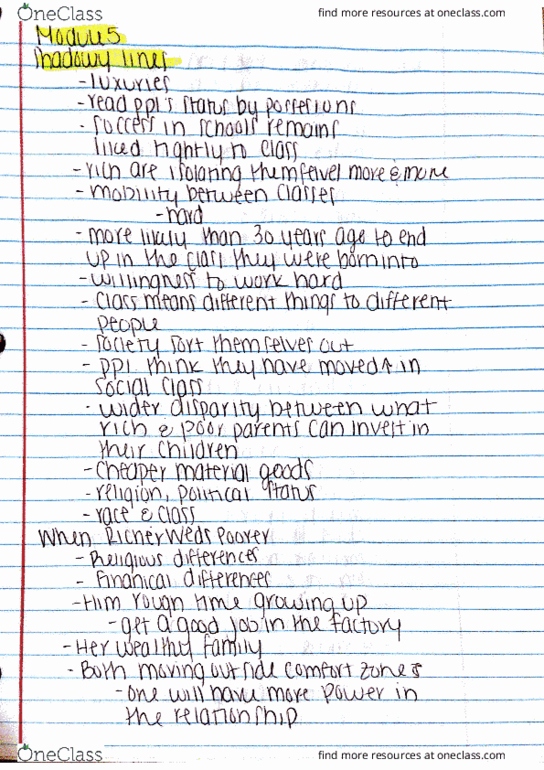 OneClass
find more resources at oneclass.com
Module 5
Shadowy lines
- luxuries
- read ppl's status by possesions
- success in schools remains
liked tightly to class
- rich are isolating themselves more & more
- mobility between classes
- hard
- more likely than 30 years ago to end
up in the class they were born into
- willingness to work hard
- class means different things to different
people
- society sort themselves out
- ppl think they have moved ↑ in
social class
- wider disparity between what
rich & poor parents can invest in
their children
- cheaper material goods
- religion, political status
- race & class
When Richer Weds Poorer
- Religious differences
- Finanical differences
- Him rough time growing up
- get a good job in the factory
- Her wealthy family
- Both moving outside comfort zones
- one will have more power in
the relationship
OneClass
find more resources at oneclass.com